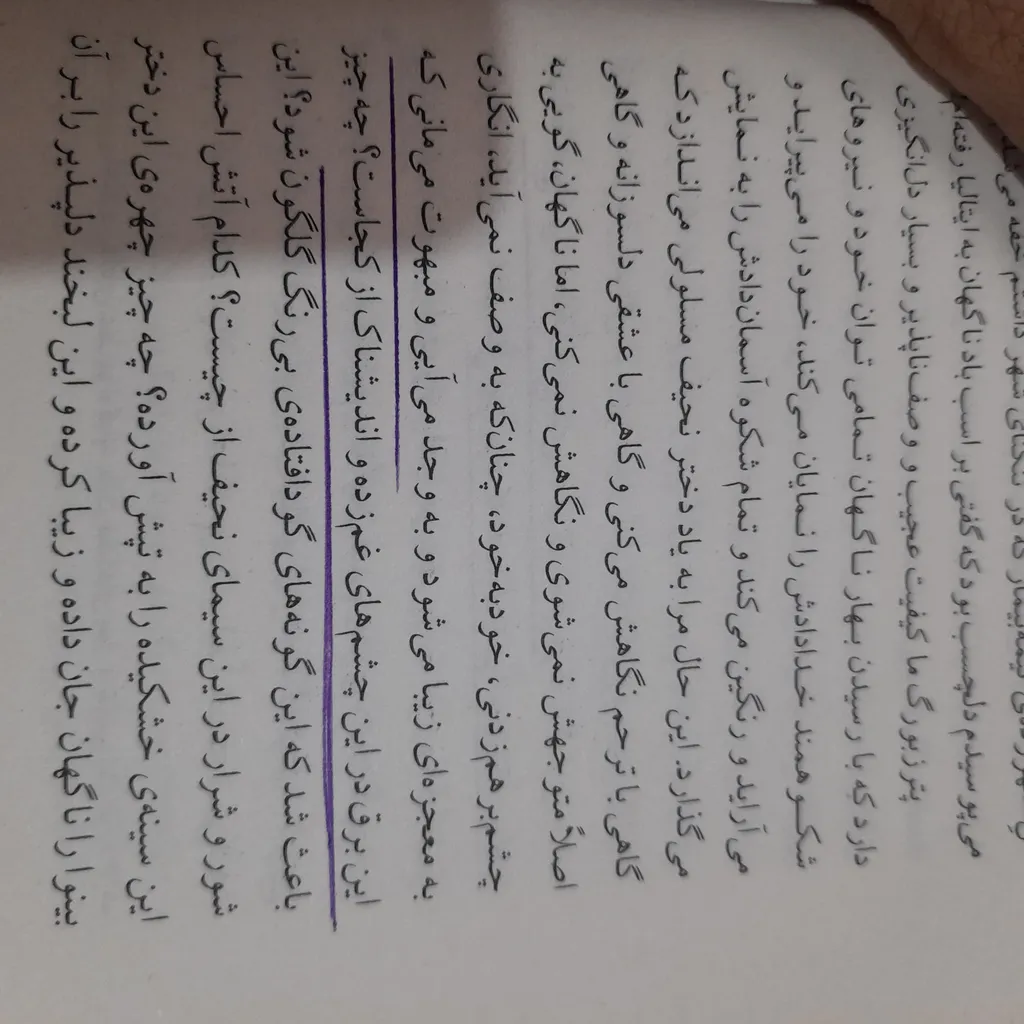 نیمه‌بیمار که در تنگنای شهر داشتم خفه
می‌پوسیدم دلچسب بود که گفتی بر اسب باد ناگهان به ایتالیا رفته‌ام
پترزبورگ ما کیفیت عجیب و وصف‌ناپذیر و بسیار دل‌انگیزی
دارد که با رسیدن بهار ناگهان تمامی توان خود و نیروهای
شکوهمند خدادادش را نمایان می‌کند، خود را می‌پیراید و
می‌آراید و رنگین می‌کند و تمام شکوه آسمان‌دادش را به نمایش
می‌گذارد. این حال مرا به یاد دختر نحیف مسلولی می‌اندازد که
گاهی با ترحم نگاهش می‌کنی و گاهی با عشقی دلسوزانه و گاهی
اصلاً متوجهش نمی‌شوی و نگاهش نمی‌کنی، اما ناگهان، گویی به
چشم‌برهم‌زدنی، خودبه‌خود، چنان‌که به وصف نمی‌آید، انگاری
به معجزه‌ای زیبا می‌شود و به وجد می‌آیی و مبهوت می‌مانی که
این برق در این چشم‌های غم‌زده و اندیشناک از کجاست؟ چه چیز
باعث شد که این گونه‌های گودافتاده‌ی بی‌رنگ گلگون شود؟ این
شور و شرار در این سیمای نحیف از چیست؟ کدام آتش احساس
این سینه‌ی خشکیده را به تپش آورده؟ چه چیز چهره‌ی این دختر
بینوا را ناگهان جان داده و زیبا کرده و این لبخند دلپذیر را بر آن